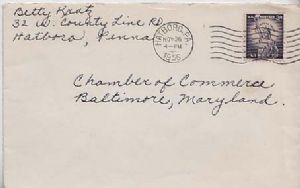 Betty Kautz
32 W. County Line Rd.
Hatboro, Penna
HATBORO, PA.
NOV 26
4-PM
1956
Chamber of Commerce
Baltimore, Maryland.